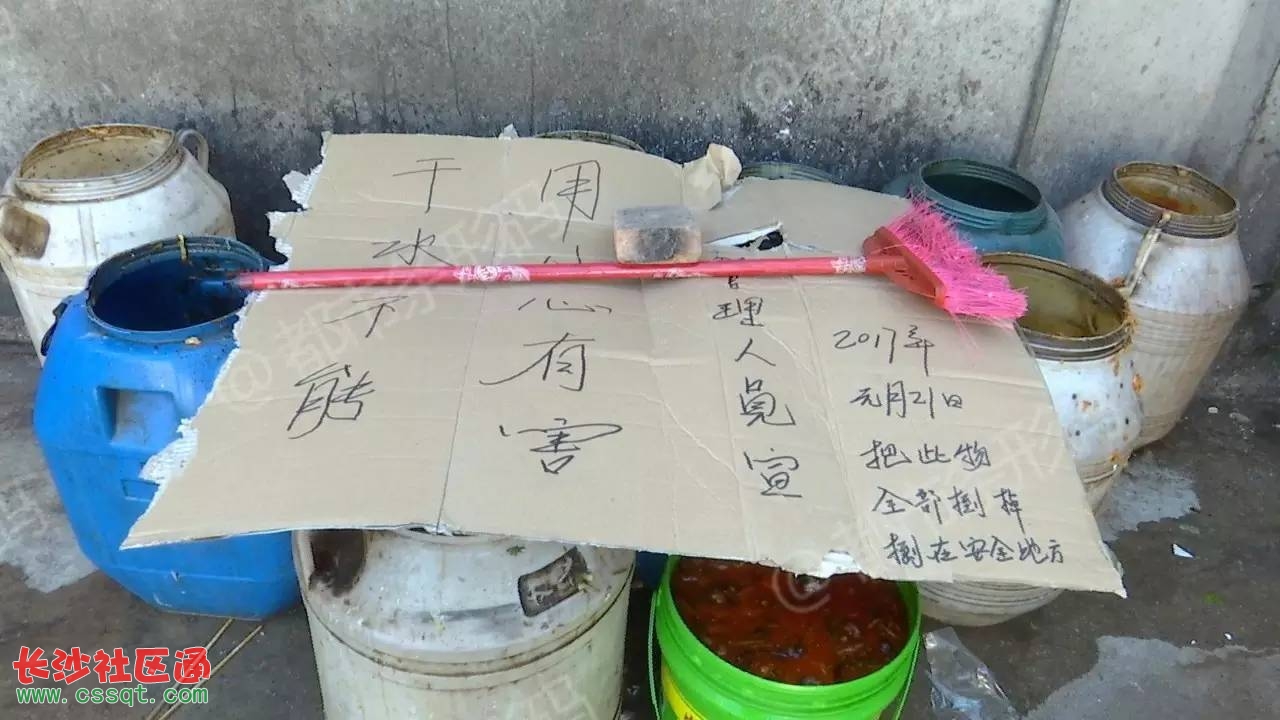 干水不能
用有害
管理人员宣
2017年
元月21日
把此物
全部倒掉
倒在安全地方
@都市条形码
长沙社区通
www.cssqt.com